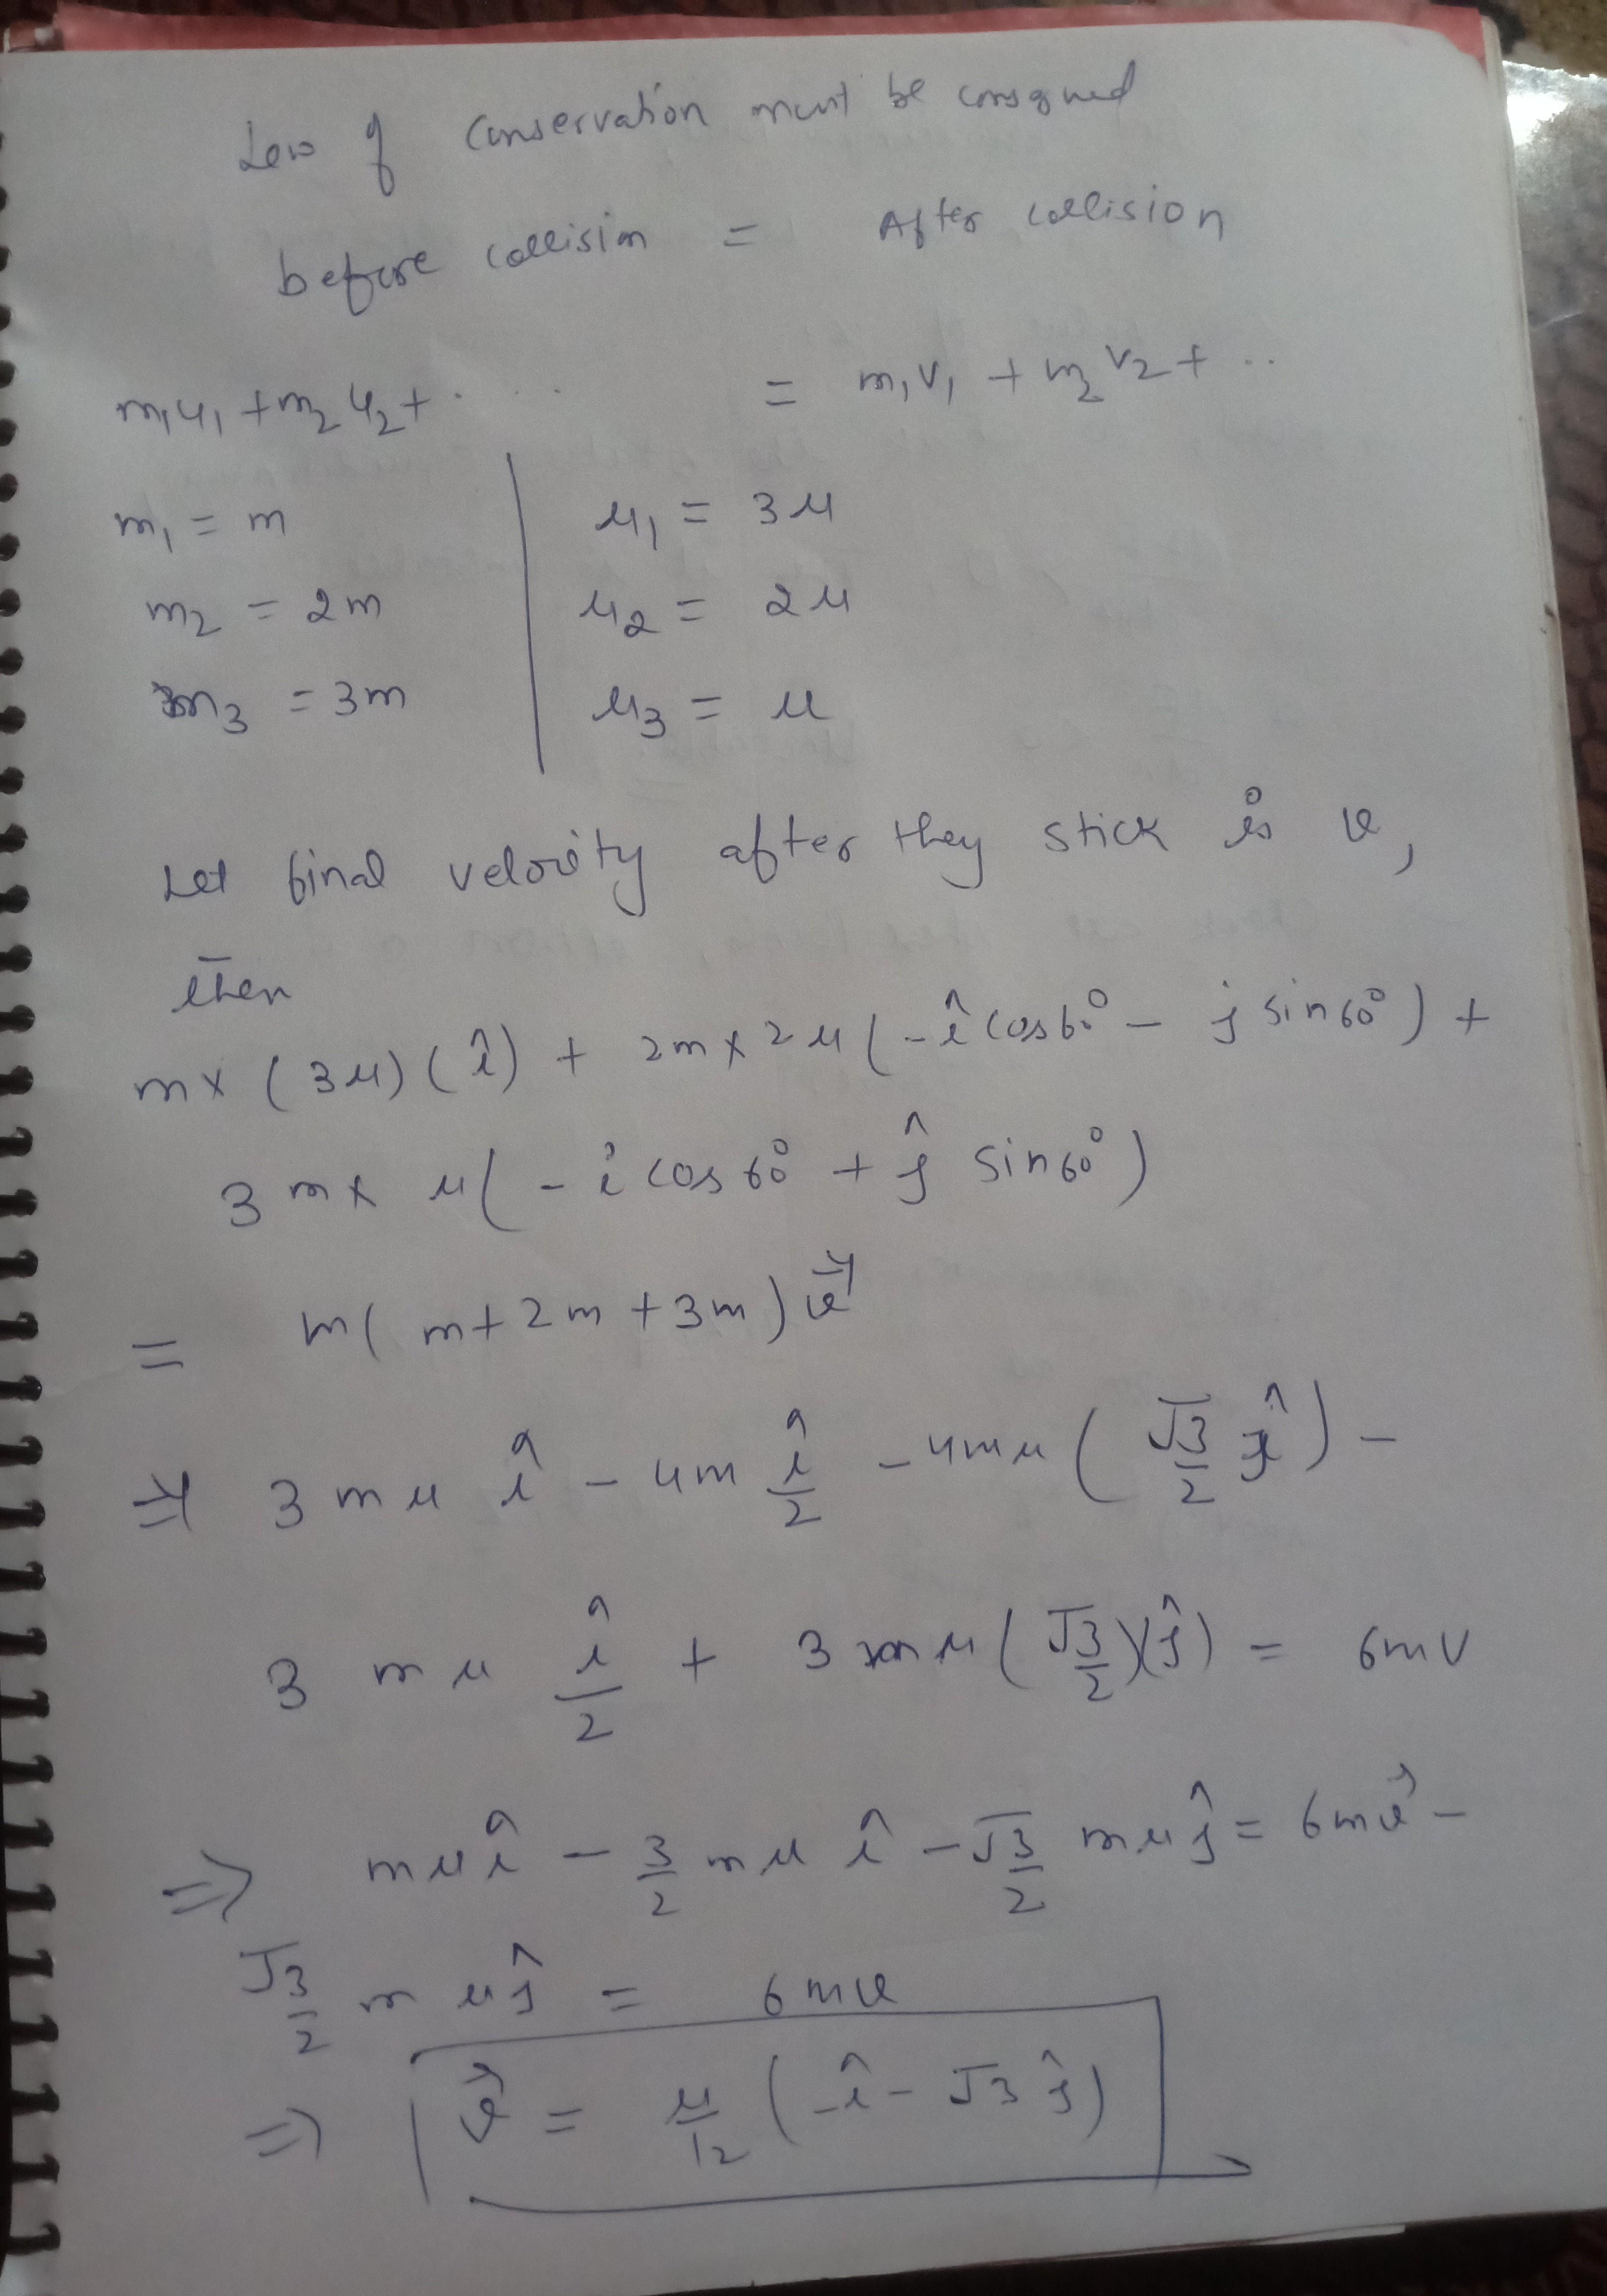 Law of Conservation must be conserved
before collision = After collision
m₁u₁ + m₂u₂ + . . . = m₁v₁ + m₂v₂ + ..
m₁ = m | u₁ = 3u
m₂ = 2m | u₂ = 2u
m₃ = 3m | u₃ = u
Let final velocity after they stick is v,
then
m x (3u) (î) + 2m x 2u (-î cos60° - j sin60°) +
3m x u (-i cos60° + ĵ sin60°)
= m(m+2m+3m) v⃗
⇒ 3mu î - 4m î/2 - 4mu (√3/2 ĵ) -
3mu î/2 + 3mu (√3/2)(ĵ) = 6mv
⇒ mu î - 3/2 mu î - √3/2 mu ĵ = 6mv⃗ -
√3/2 mu ĵ = 6mv
⇒ v⃗ = u/12 (-î - √3 ĵ)